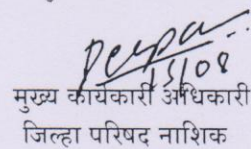 15/08
मुख्य कार्यकारी अधिकारी
जिल्हा परिषद नाशिक